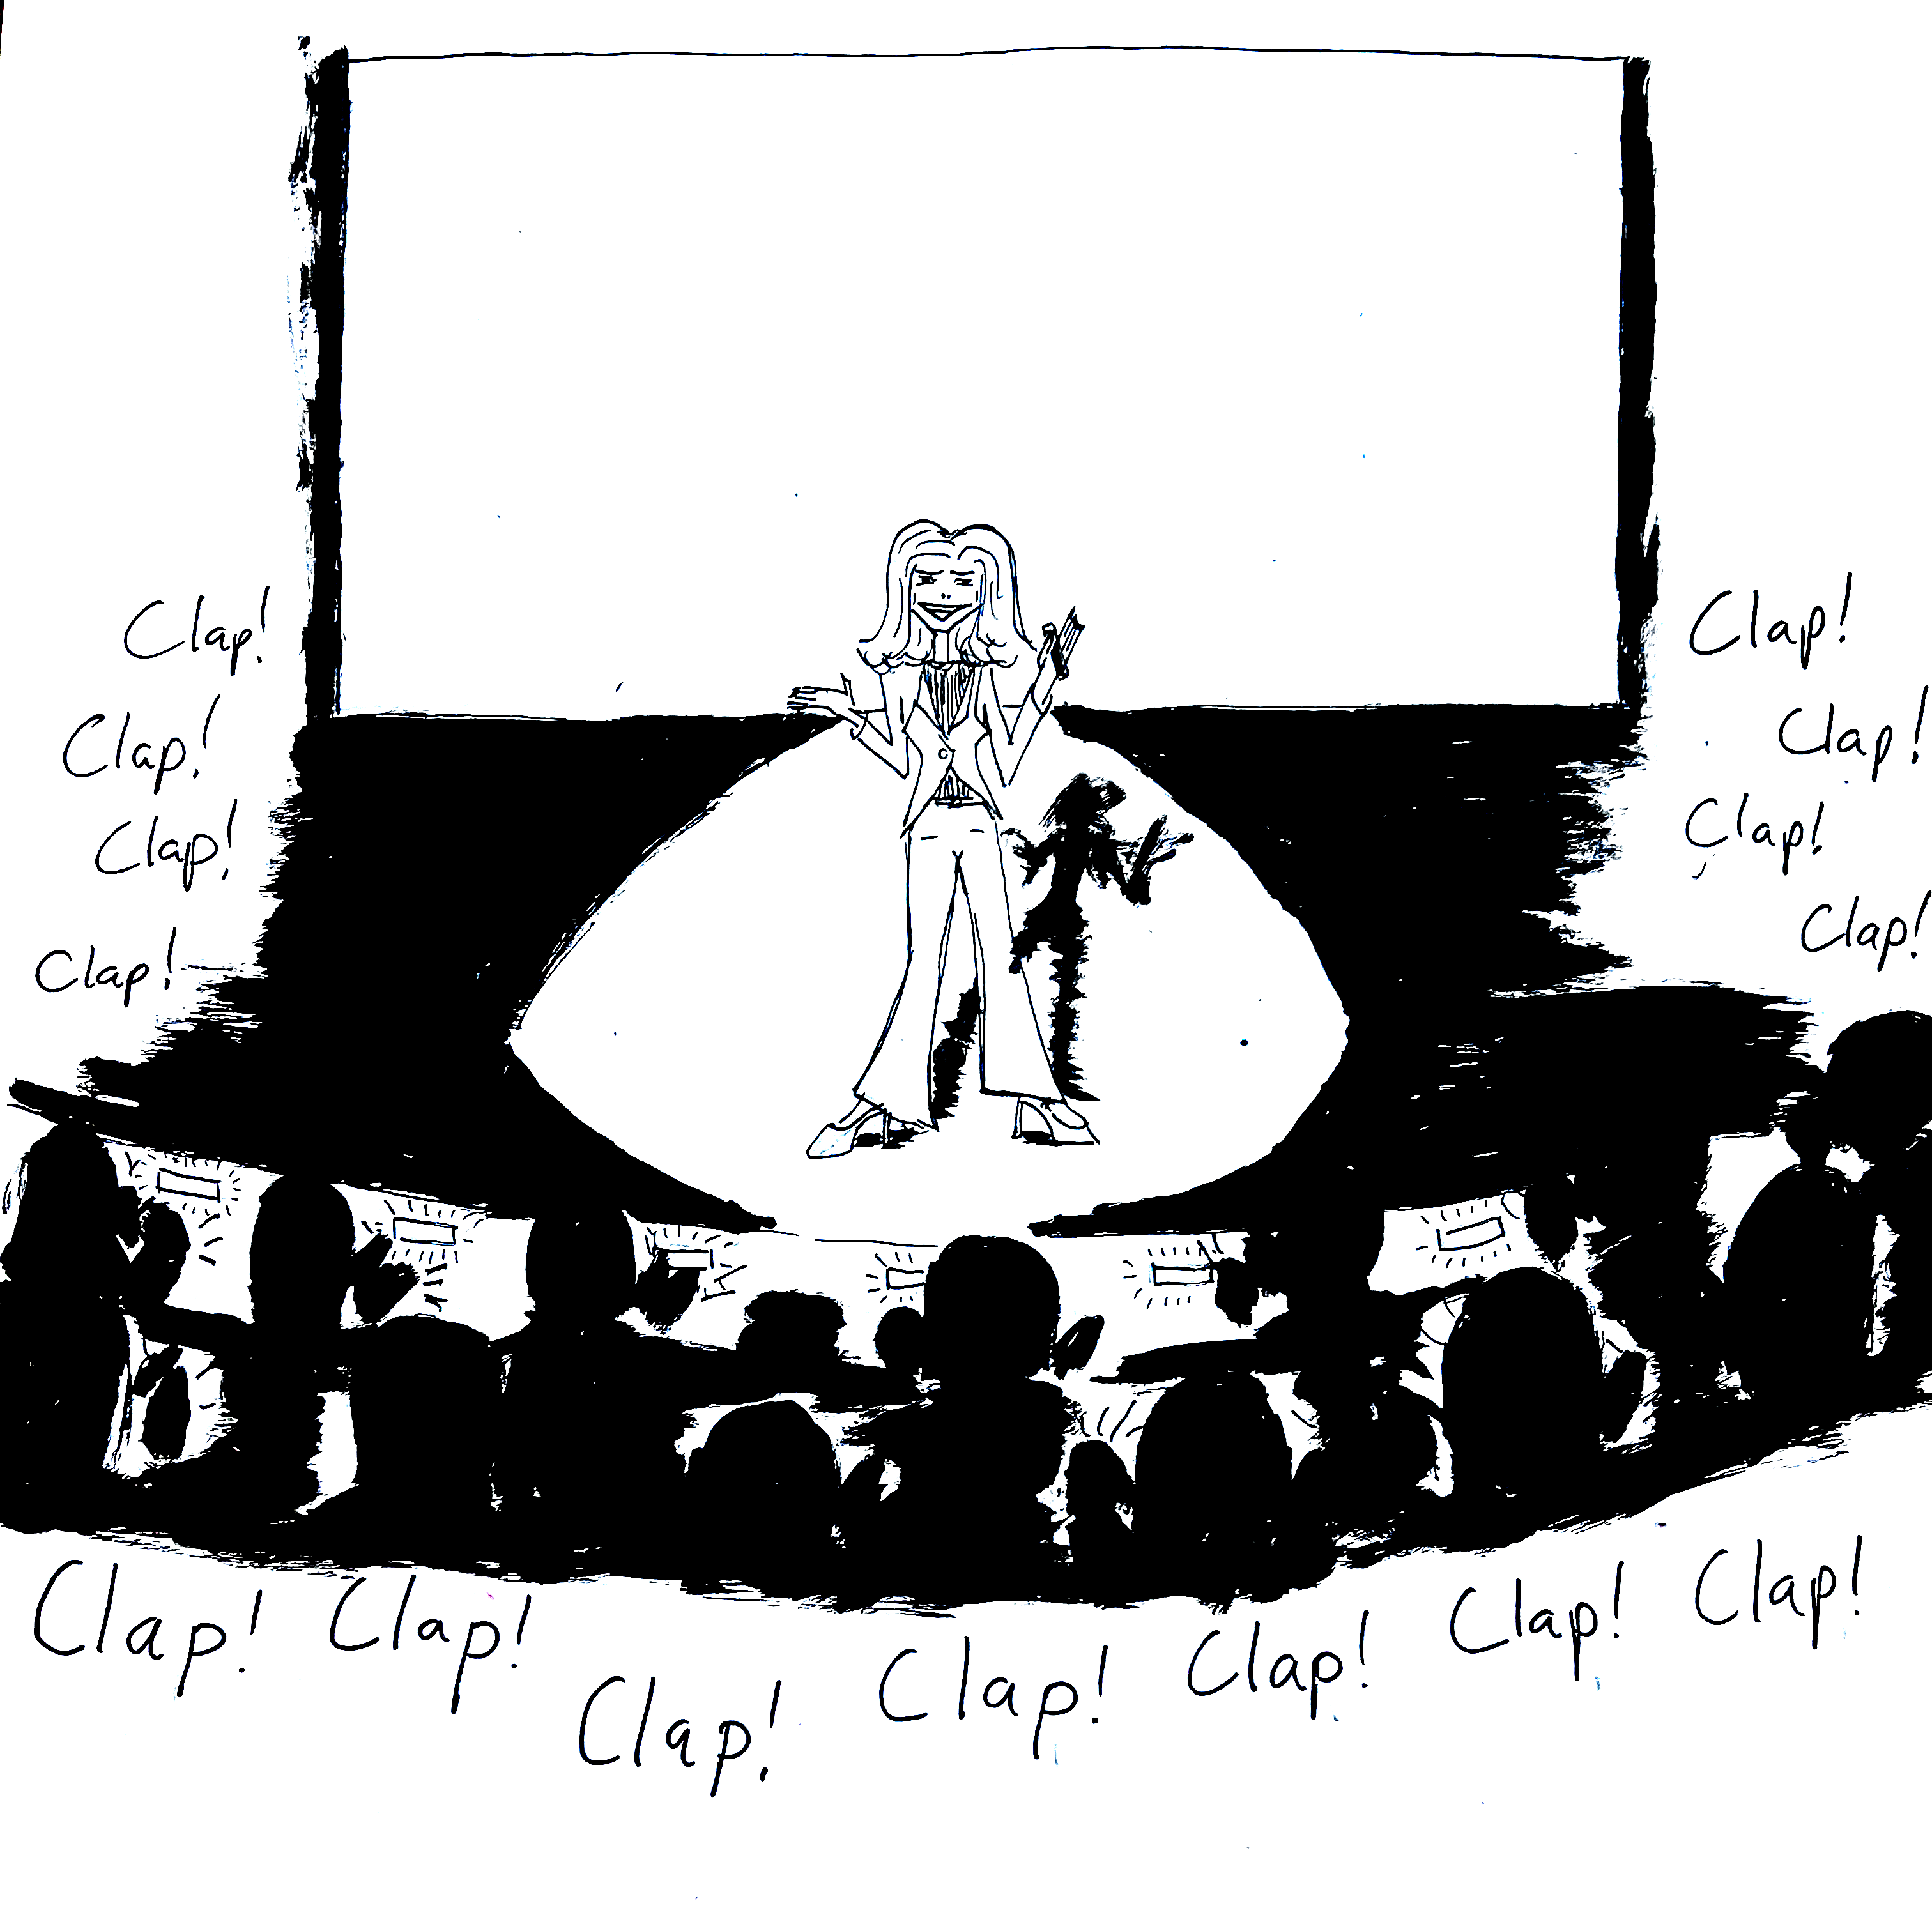 Clap!
Clap!
Clap!
Clap!
Clap!
Clap!
Clap!
Clap!
Clap! Clap! Clap! Clap! Clap! Clap! Clap!